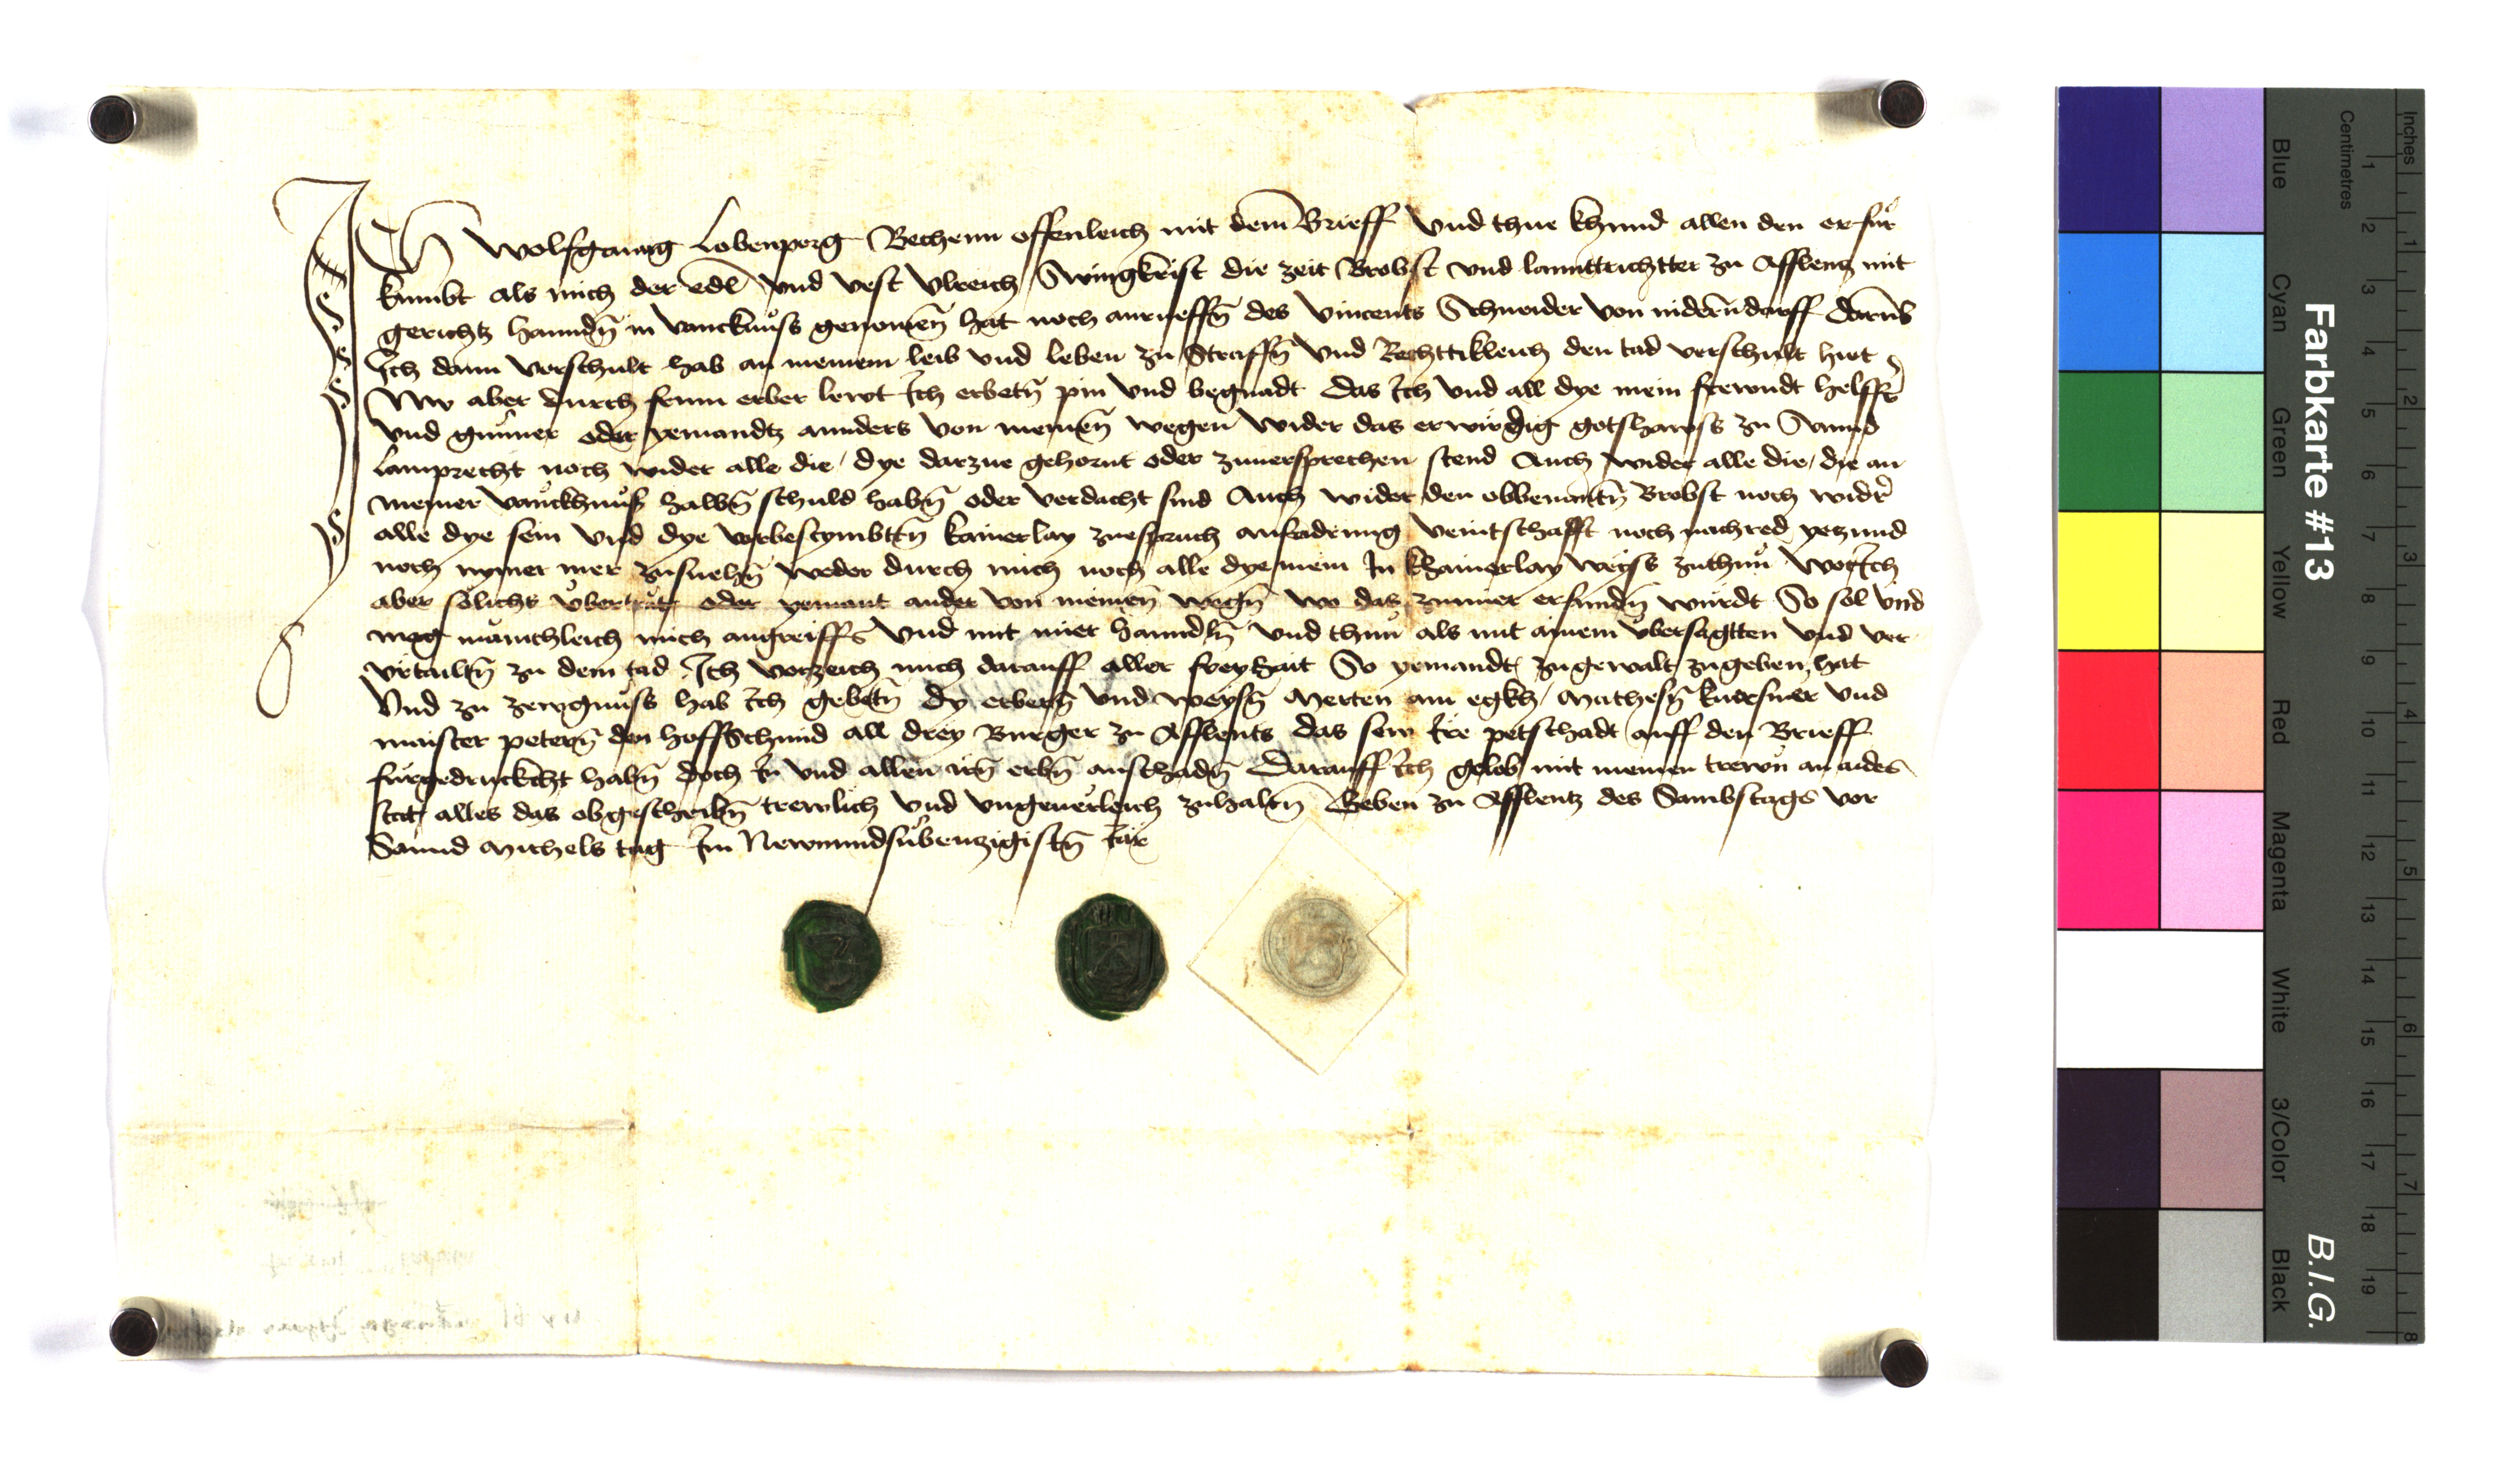 ICh Wolfganng Lobenperg Bechenn offenleich mit dem Brieff Vnd thue khund allen den er fur
kumbt als mich der edl Vnd vest Vlreich Swingkrist die zeit Brobst vnd lannttrichtter zu Afflenz mit
gerichtz hanndn̄ in vancknuss genomen̄ hat noch anrueffn̄ des Vincents Schneider von niderndorff darūb
Ich dann verschult hab an meinem leib vnd leben zu Straffn̄ Vnd Rechttikleich den tad verschult hiet
Nw aber durch frum erber lewt Ich erbetn̄ pin Vnd begnadt das Ich Vnd all dye mein frewndt helffr̄
vnd günner oder yemandtz annders von meinen̄ wegen wider das erwirdig gotshawss zu Sannd
Lamprecht noch wider alle die / dye darzue gehornt oder zuuersprechen stend Auch wider alle die / die an
meiner vanckhnuss halbn̄ schuld habn̄ oder verdacht sind Auch wider den obbenantn̄ Brobst noch widr̄
alle dye sein vnd dye vorbestymbttn̄ kainerlay zuespruch anfadrung veintschafft noch nachred yetzund
noch nymer mer zu suehn̄ weder durch mich noch alle dye mein In khainerlay weyss zuthun Wo Ich
aber sölichs übertrat oder yemant ander von meinen̄ wegn̄ wo das ymmer erfundn̄ würdt So sol vnd
mag mänichleich mich angreiffn Vnd mit mier hanndln̄ Vnd thun als mit ainem übersagtten Vnd ver
vrtailtn̄ zu dem tad Ich verzeich mich darauff aller freyhait So yemandt zu gewalt zu geben hat
Vnd zu zewgnuss hab Ich gebetn̄ dy erbern̄ vnd weysn̄ Merten am egkh / Mathesn̄ kuersner Vnd
maister petern̄ den hoffschmid all drey Burger zu Afflents das sew Ire petschadt auff den Brieff
fürgedruckcht habn̄ doch In vnd allen irn̄ erbn̄ anschadn̄ Darauff Ich gelob mit meinen trewn an aides
stat alles das obgeschribn̄ trewlich Vnd vngeuerleich zuhaltn̄ Geben zu Afflentz des Sambstags vor
Sannd Michels tag Im Newnundsübenzigistn̄ Iar
Farbkarte #13
B.I.G.
Inches
Centimetres
Blue
Cyan
Green
Yellow
Red
Magenta
White
3/Color
Black
1 2 3 4 5 6 7 8 9 10 11 12 13 14 15 16 17 18 19
1 2 3 4 5 6 7 8